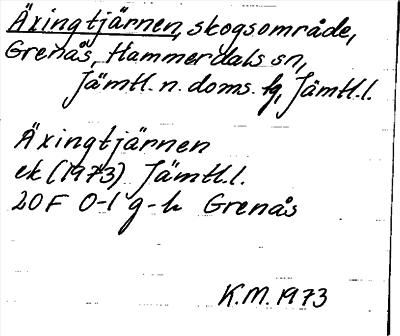 Äxingtjärnen, skogsområde,
Grenås, Hammerdals sn,
Jämtl. n. doms. fg, Jämtl. l.
Äxingtjärnen
ek (1973) Jämtl. l.
20F 0-1 g-h Grenås
K.M. 1973